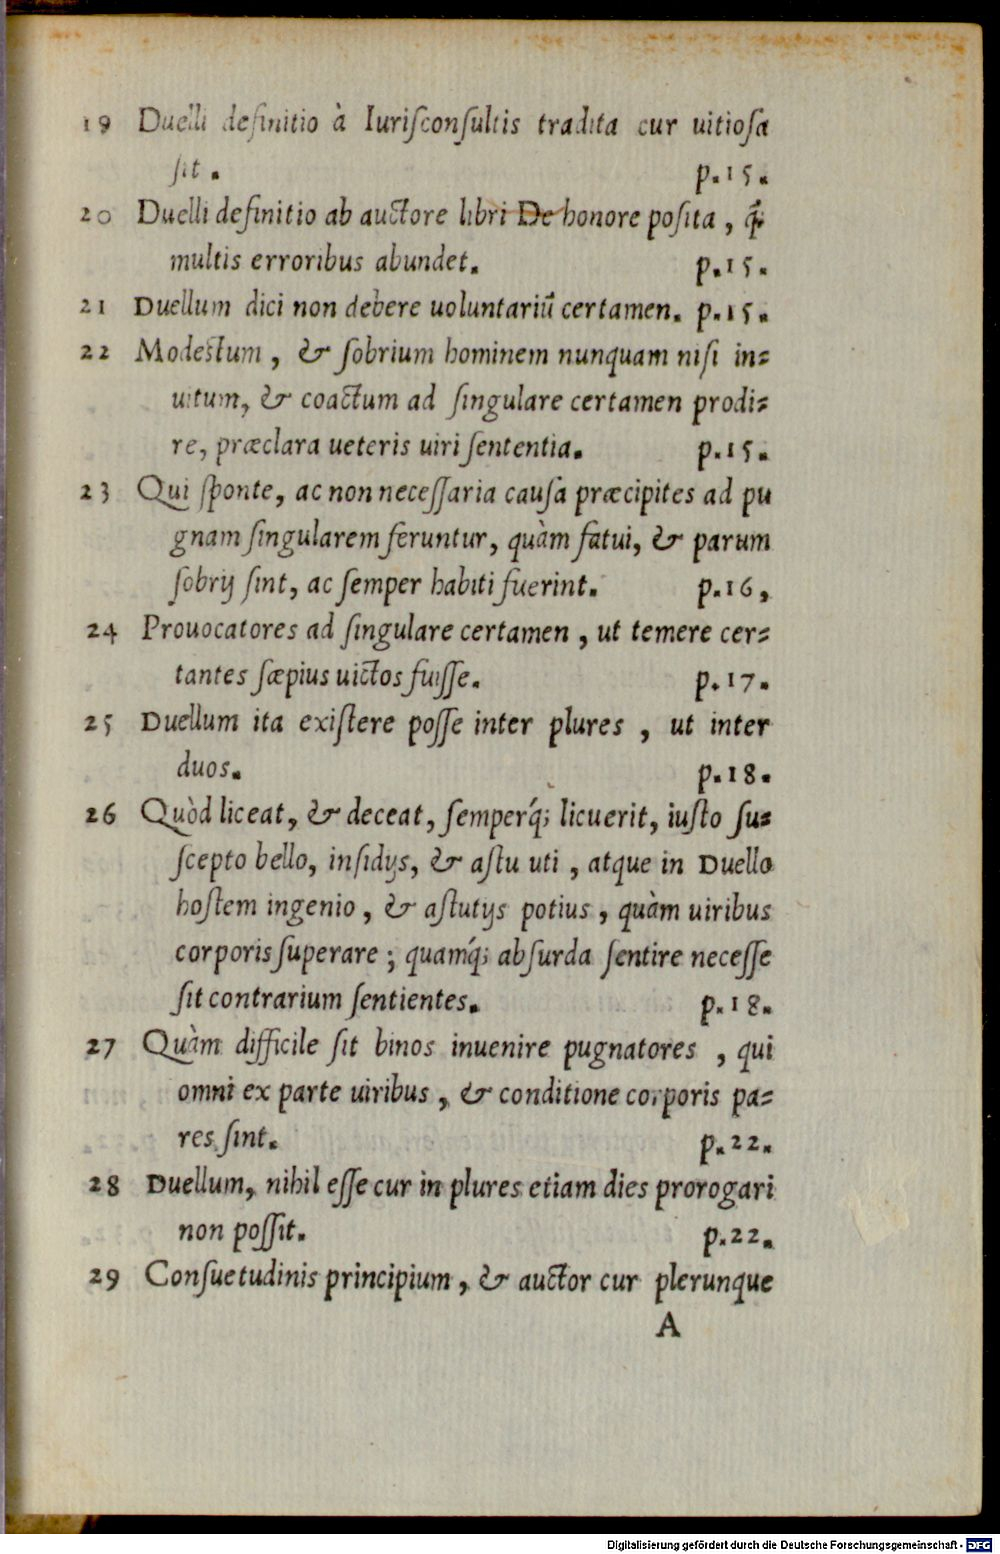 19 Duelli definitio à Iuriſconſultis tradita cur uitioſa
ſit. p.15.
20 Duelli definitio ab auctore libri De honore poſita, q̃
multis erroribus abundet. p.15.
21 Duellum dici non debere uoluntariũ certamen. p.15.
22 Modeſtum, & ſobrium hominem nunquam niſi in=
uitum, & coactum ad ſingulare certamen prodi=
re, præclara ueteris uiri ſententia. p.15.
23 Qui ſponte, ac non neceſſaria cauſa præcipites ad pu
gnam ſingularem feruntur, quàm fatui, & parum
ſobrij ſint, ac ſemper habiti fuerint. p.16,
24 Prouocatores ad ſingulare certamen, ut temere cer=
tantes ſæpius uictos fuiſſe. p.17.
25 Duellum ita exiſtere poſſe inter plures, ut inter
duos. p.18.
26 Quòd liceat, & deceat, ſemperq́; licuerit, iuſto ſu=
ſcepto bello, inſidijs, & aſtu uti, atque in Duello
hoſtem ingenio, & aſtutijs potius, quàm uiribus
corporis ſuperare; quamq́; abſurda ſentire neceſſe
ſit contrarium ſentientes. p.18.
27 Quàm difficile ſit binos inuenire pugnatores, qui
omni ex parte uiribus, & conditione corporis pa=
res ſint. p.22.
28 Duellum, nihil eſſe cur in plures etiam dies prorogari
non poſſit. p.22.
29 Conſuetudinis principium, & auctor cur plerunque
A
Digitalisierung gefördert durch die Deutsche Forschungsgemeinschaft - DFG